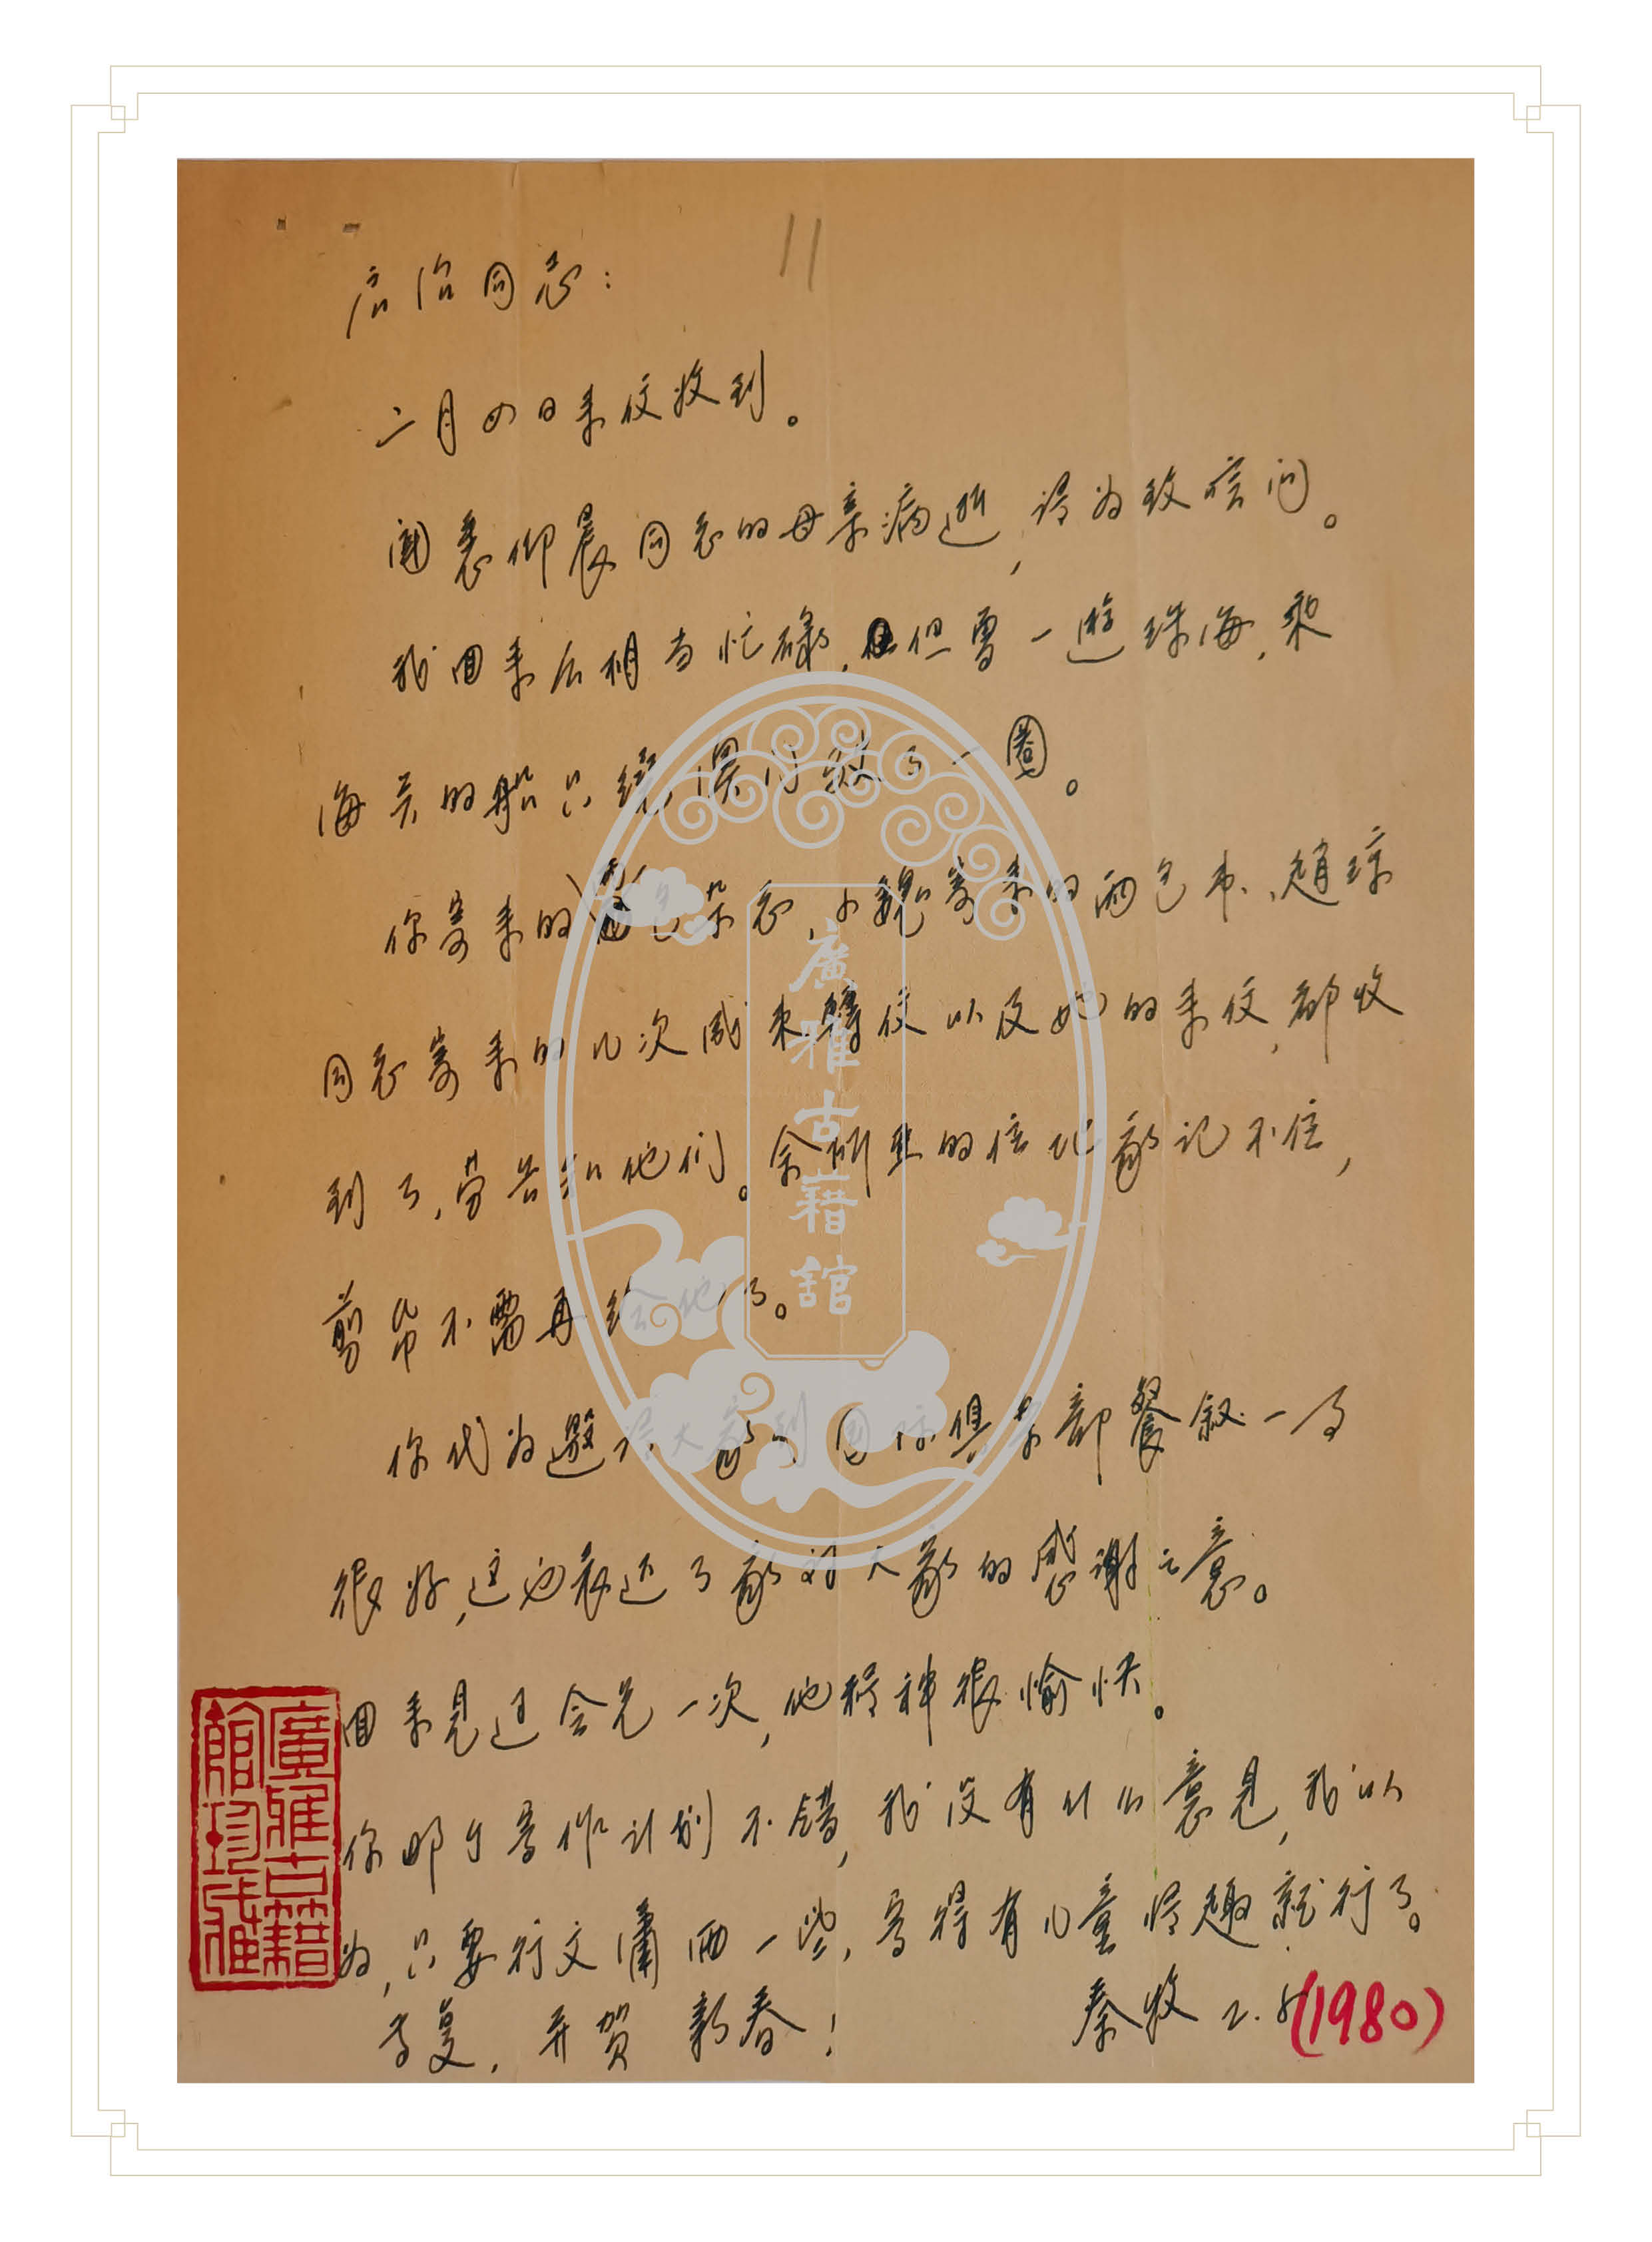 11
启治同志：
二月四日来信收到。
闻悉仰晨同志的母亲病逝，请为致唁问。
我回来后相当忙碌，但曾一游珠海，乘
海关的船只绕澳门兜了一圈。
你寄来的两包杂志，小魏寄来的两包书、赵琼
同志寄来的几次成束转信以及她的来信，都收
到了，劳告知他们。余所亚的住址我记不住，
剪布不需再给他了。
你代为邀请大家到国际俱乐部餐叙一事
很好，这也表达了我对大家的感谢之意。
回来见过会兄一次，他精神很愉快。
你那个写作计划不错，我没有什么意见，我以
为，只要行文潇洒一些，写得有儿童情趣就行了。
专复，并贺 新春！ 秦牧 2.8 (1980)
廣雅古籍館
廣雅古籍
館珍藏